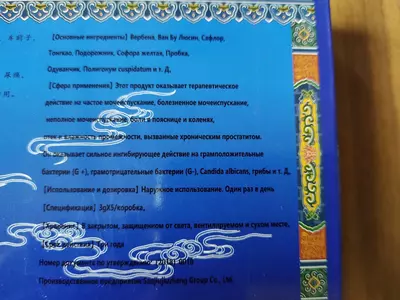 [Основные ингредиенты] Вербена, Ван Бу Люсин, Сафлор,
Тонгкао, Подорожник, Софора желтая, Пробка,
Одуванчик, Полигонум cuspidatum и т. Д,
[Сфера применения] Этот продукт оказывает терапевтическое
действие на частое мочеиспускание, болезненное мочеиспускание,
неполное мочеиспускание, боли в пояснице и коленях,
отек и влажность промежности, вызванные хроническим простатитом.
Он оказывает сильное ингибирующее действие на грамположительные
бактерии (G +), грамотрицательные бактерии (G-), Candida albicans, грибы и т. Д,
[Использование и дозировка] Наружное использование. Один раз в день
[Спецификация] 3gX5/коробка,
[Хранение] В закрытом, защищенном от света, вентилируемом и сухом месте,
[Срок годности] Три года
Номер документа по утверждению
Производственное предприятие Group Co., Ltd.